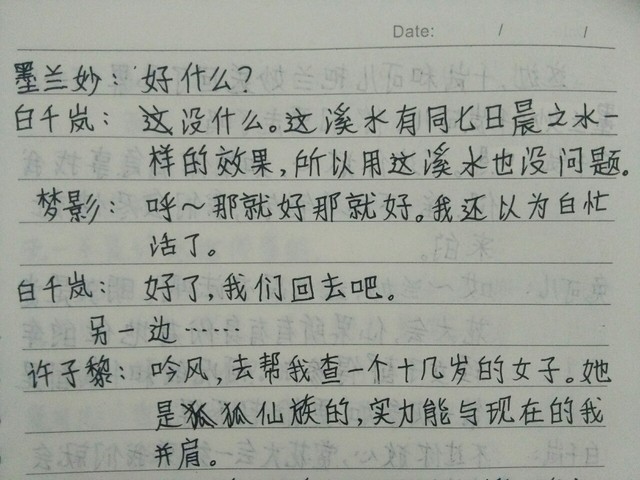 Date: / /
墨兰妙：好什么？
白千岚：这没什么。这溪水有同七日晨之水一
样的效果，所以用这溪水也没问题。
梦影：呼～那就好那就好。我还以为白忙
活了。
白千岚：好了，我们回去吧。
另一边……
许子黎：吟风，去帮我查一个十几岁的女子。她
是狐狐仙族的，实力能与现在的我
并肩。